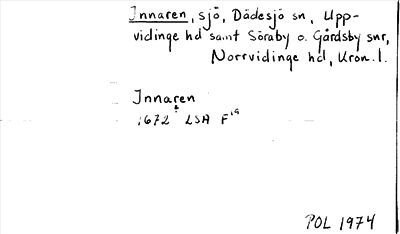 Innaren, sjö, Dädesjö sn, Upp-
vidinge hd samt Söraby o. Gårdsby snr,
Norrvidinge hd, Kron. l.
Innaren
1672 LSA F 1a
POL 1974